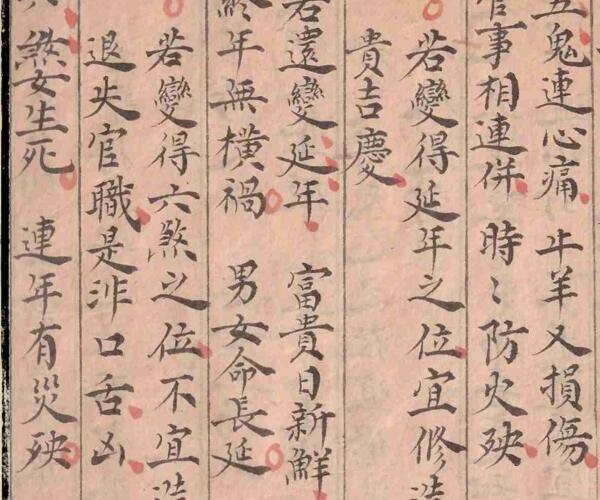 五鬼連心痛 牛羊又損傷
官事相連併 時〻防火殃
若變得延年之位宜修造
貴吉慶
若還變延年 富貴日新鮮
終年無橫禍 男女命長延
若變得六煞之位不宜造
退失官職是非口舌凶
六煞女生死 連年有災殃